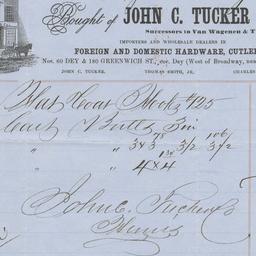 Bought of JOHN C. TUCKER
Successors in Van Wagenen & T
IMPORTERS AND WHOLESALE DEALERS IN
FOREIGN AND DOMESTIC HARDWARE, CUTLER
Nos. 60 DEY & 180 GREENWICH ST., cor. Dey (West of Broadway, near
JOHN C. TUCKER. THOMAS SMITH, JR. CHARLES
Hat & Coat Hooks #425
Cast Butts
" " 3 1/2 3 1/2
" " 4 x 4
John C. Tucker &